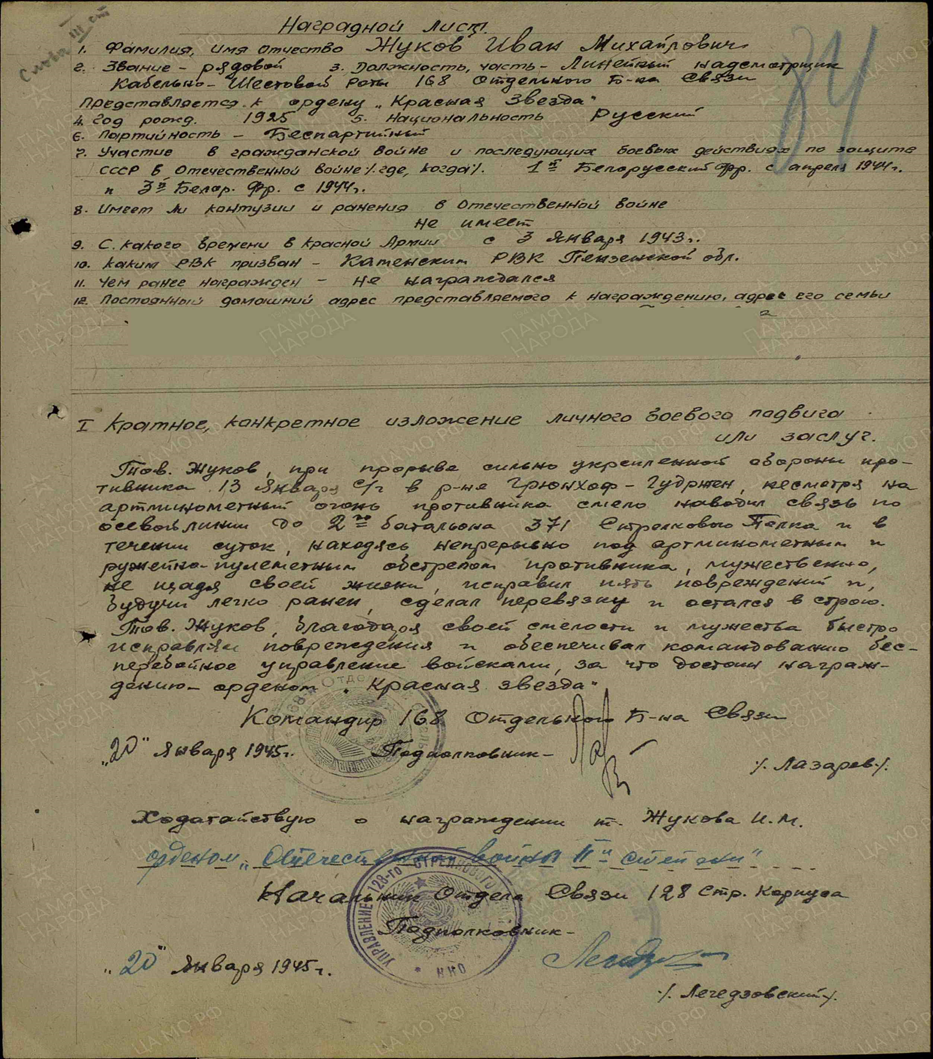 Слава III ст
Наградной Лист.
34
1. Фамилия, имя отчество Жуков Иван Михайлович
2. Звание – рядовой 3. Должность, часть – Линейный надсмотрщик
Кабельно-Шестовой роты 168 Отдельного Б-на Связи
Представляется к ордену „Красная Звезда"
4. Год рожд. 1925 5. Национальность Русский
6. Партийность – Беспартийный
7. Участие в гражданской войне и последующих боевых действиях по защите
СССР в Отечественной войне /где, когда/. 1й Белорусский фр. с апреля 1944г.
и 3й Белор. Фр. с 1944г.
8. Имеет ли контузии и ранения в Отечественной войне
не имеет
9. С какого времени в Красной Армии с 3 Января 1943г.
10. Каким РВК призван – Каменским РВК Пензенской обл.
11. Чем ранее награжден – не награждался
12. Постоянный домашний адрес представляемого к награждению, адрес его семьи
I Краткое, конкретное изложение личного боевого подвига
или заслуг.
Тов. Жуков, при прорыве сильно укрепленной обороны про-
тивника 13 Января с/г в р-не Грюнхоф – Гудржен, несмотря на
артминометный огонь противника смело наводил связь по
осевой линии до 2го батальона 371 Стрелкового Полка и в
течении суток, находясь непрерывно под артминометным и
ружейно-пулеметным обстрелом противника, мужественно,
не щадя своей жизни, исправил пять повреждений и,
будучи легко ранен, сделал перевязку и остался в строю.
Тов. Жуков, благодаря своей смелости и мужества быстро
исправлял повреждения и обеспечивал командованию бес-
перебойное управление войсками, за что достоин награж-
дению – орденом „Красная звезда"
Командир 168 Отдельного Б-на Связи
„20" Января 1945г. Подполковник –
/Лазарев/.
Ходатайствую о награждении т. Жукова И.М.
орденом „Отечественной войны II й степени"
Начальник Отдела Связи 128 Стр. Корпуса
УПРАВЛЕНИЕ 128-го СТРЕЛКОВОГО
НКО
Подполковник –
„20" Января 1945г.
/Легедзовский/.
ПАМЯТЬ НАРОДА
ЦА МО РФ